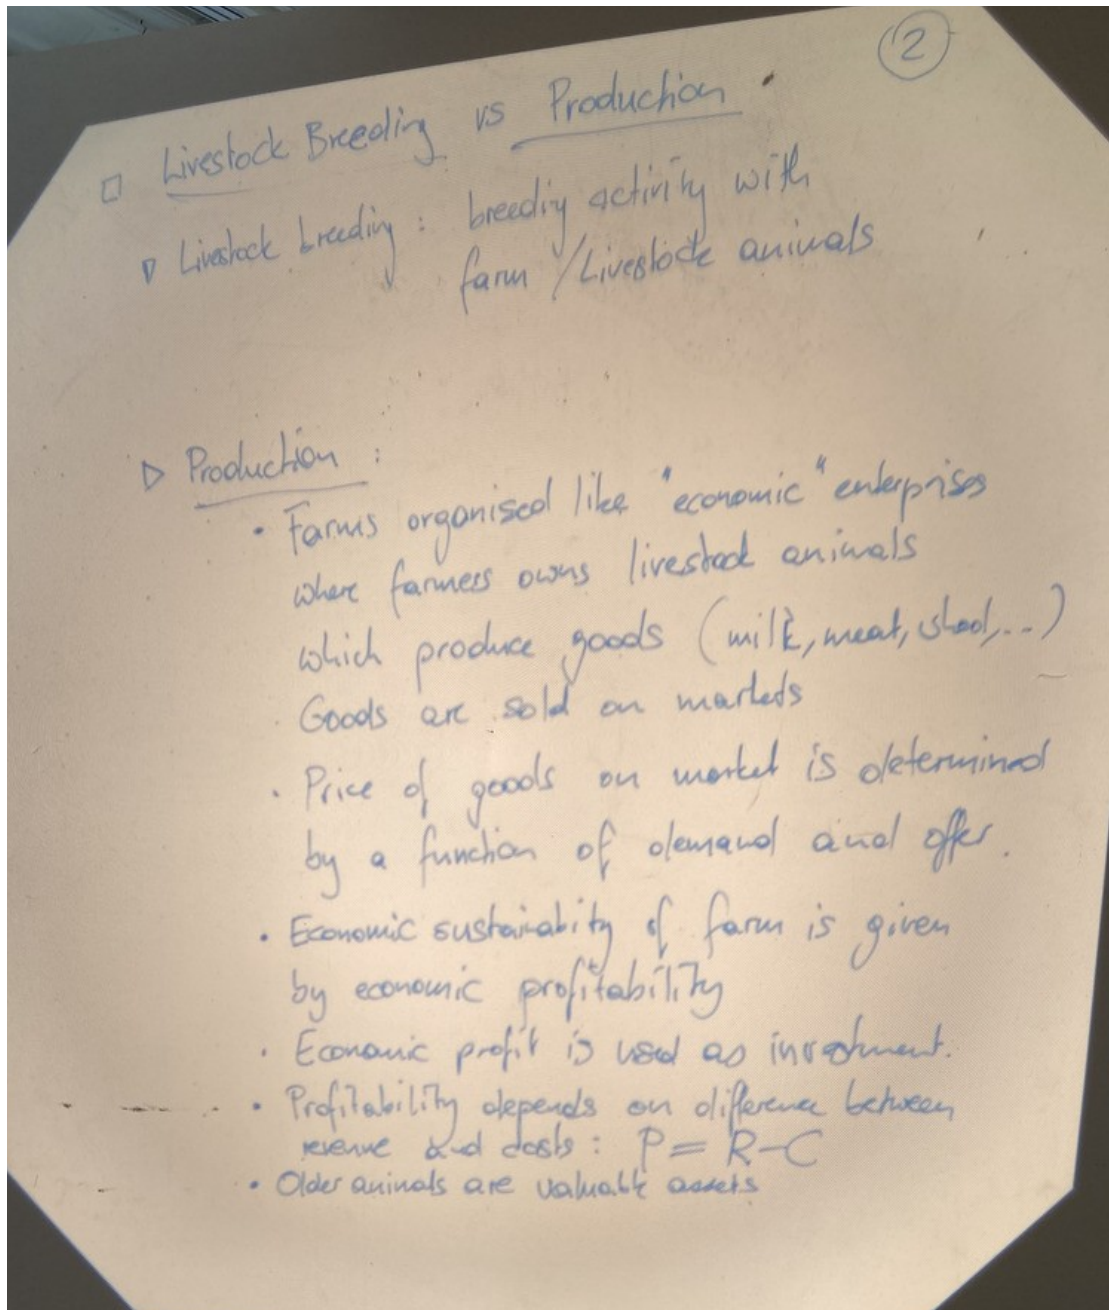 2
□ Livestock Breeding vs Production
▷ Livestock breeding : breeding activity with
farm / Livestock animals
▷ Production :
• Farms organised like "economic" enterprises
where farmers owns livestock animals
which produce goods (milk, meat, ...)
• Goods are sold on markets
• Price of goods on market is determined
by a function of demand and offer.
• Economic sustainability of farm is given
by economic profitability
• Economic profit is used as investment.
• Profitability depends on difference between
revenue and costs : P = R - C
• Older animals are valuable assets